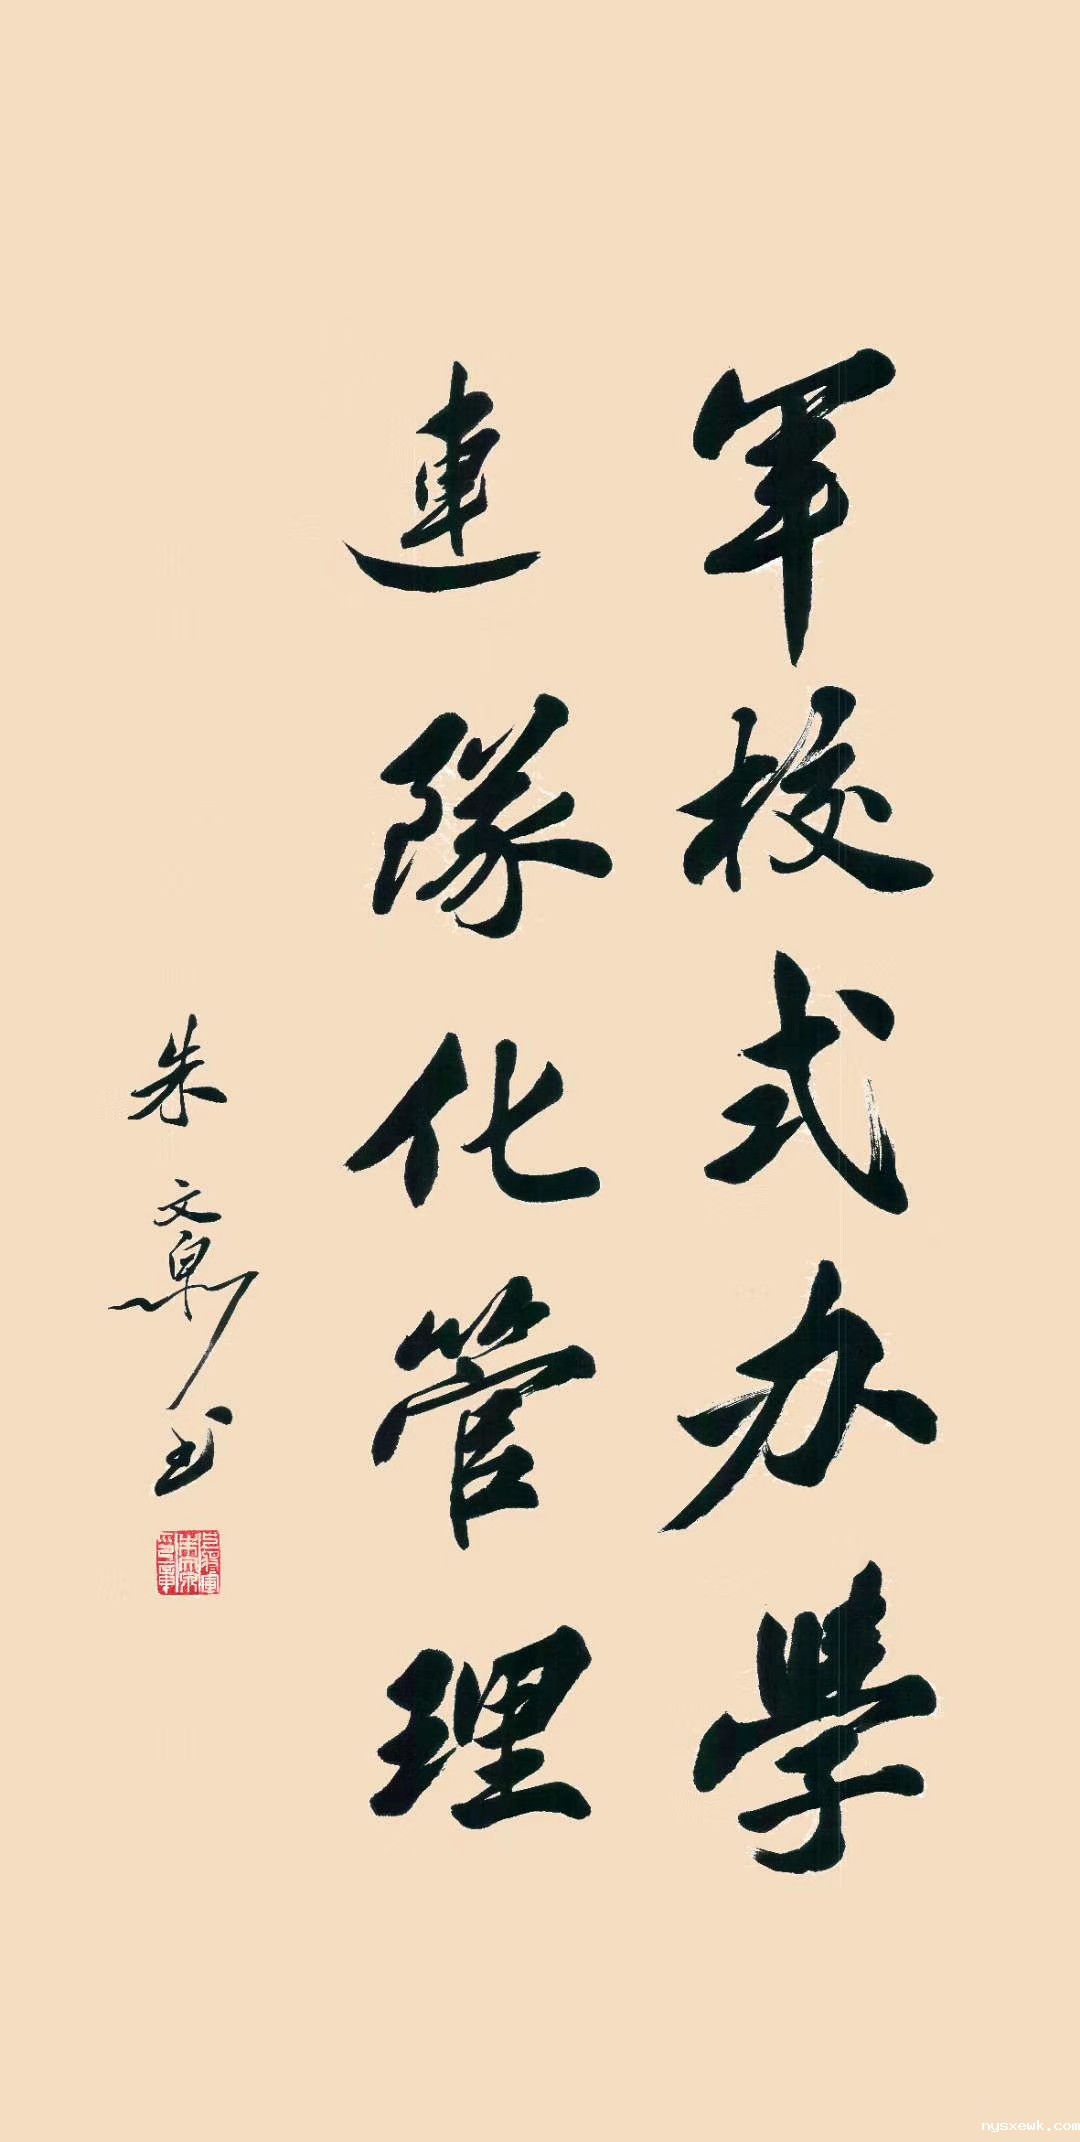 軍校式办學
連隊化管理
朱文泉书
nysxewk.com